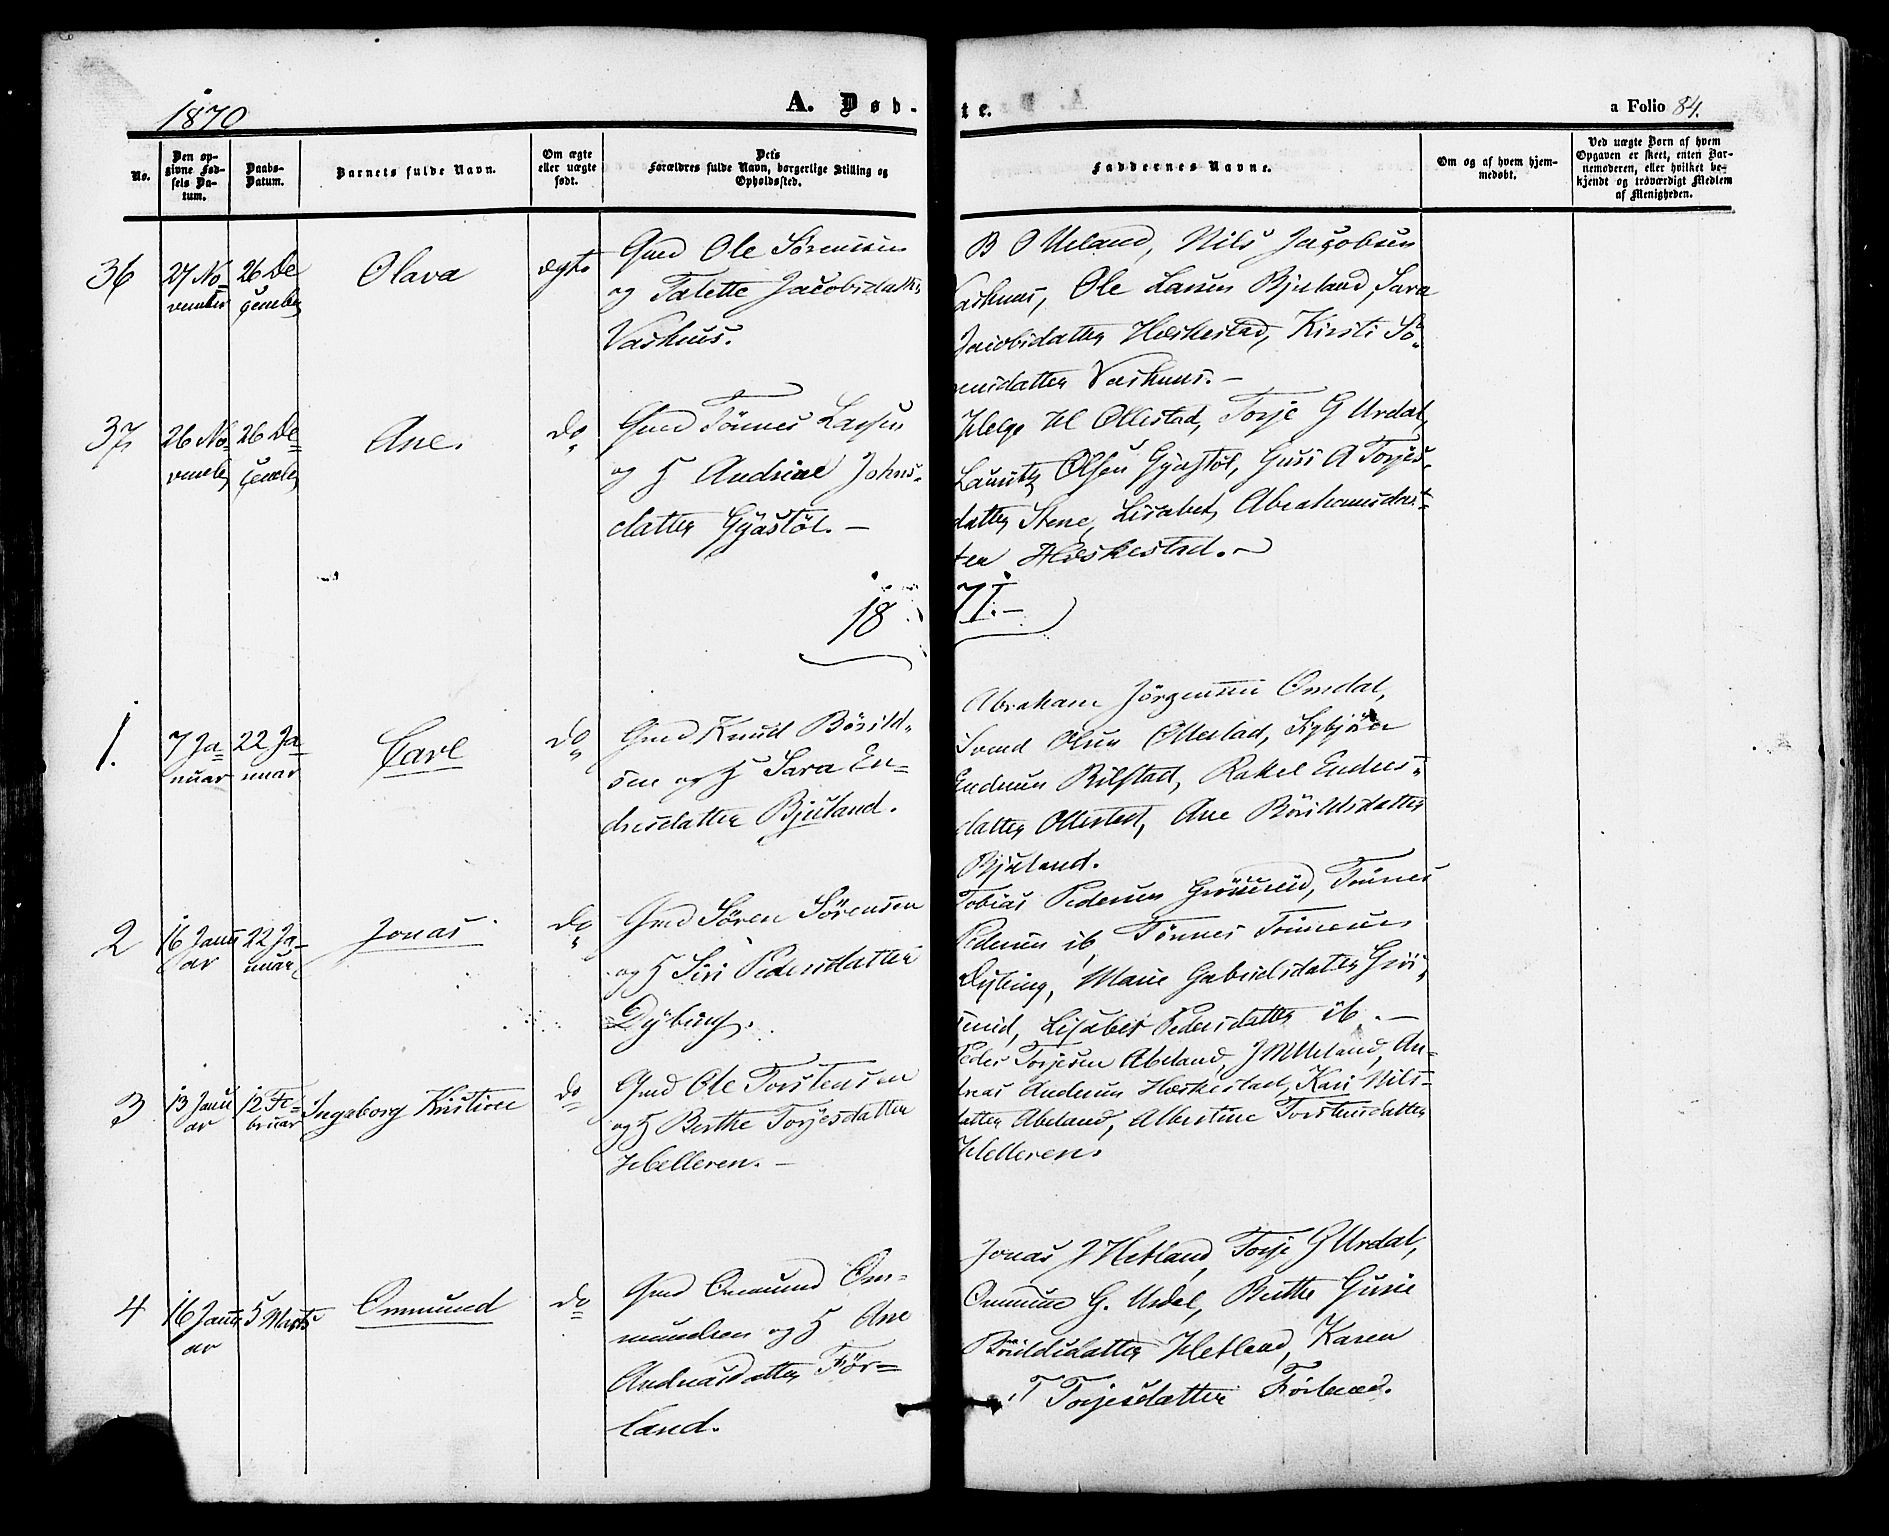 1870
A. Døb-
te.
a Folio 84.
No.
Den op-
givne Fød-
sels Da-
tum.
Daabs-
Datum.
Barnets fulde Navn.
Om ægte
eller uægte
født.
Dets
Forældres fulde Navn, borgerlige Stilling og
Opholdssted.
Faddernes Navne.
Om og af hvem hjem-
medøbt.
Ved uægte Børn af hvem
Opgaven er skeet, enten Bar-
nemoderen, eller hvilket be-
kjendt og troværdigt Medlem
af Menigheden.
36
27 No-
vember
26 De
cember
Olava
ægte
Gmd Ole Sørensen
og Talette Jacobsdatter
Vashuus.
B O Ueland, Nils Jacobsen
Vashuus, Ole Larsen Bjuland, Sara
Jacobsdatter Heskestad, Kirsti Sö-
rensdatter Vashuus. -
37
26 No-
vember
26 De-
cember
Ane
do
Gmd Tönnes Larsen
og H Andrine Johns-
datter Gyastöl. -
Helge H Ollestad, Torje G Urdal,
Lauritz Olsen Gyastöl, Guri A Torjes-
datter Stene, Lisabet Abrahamsdat-
ter Heskestad. -
1871. -
1.
7 Ja-
nuar
22 Ja-
nuar
Carl
do
Gmd Knud Börild-
sen og H Sara En-
dresdatter Bjuland.
Abraham Jörgensen Omdal,
Svend Olsen Ollestad, Sigbjörn
Endresen Bilstad, Rakel Endres-
datter Ollestad, Ane Börildsdatter
Bjuland.
2
16 Janu
ar
22 Ja-
nuar
Jonas
do
Gmd Sören Sörensen
og H Siri Pedersdatter
Dybing.
Tobias Pedersen Grösseid, Tönnes
Pedersen ib, Tönnes Tönnesen
Dybing, Marie Gabrielsdatter Grös-
seid, Lisabet Pedersdatter ib. -
3
13 Janu
ar
12 Fe-
bruar
Ingeborg Kristine
do
Gmd Ole Torstensen
og H Berthe Torjesdatter
Helleren. -
Peder Torjesen Abeland, J M Ueland, An-
dreas Andersen Heskestad, Kari Nils-
datter Abeland, Albertine Torstensdatter
Helleren.
4
16 Janu
ar
5 Marts
Ommund
do
Gmd Ommund Om-
mundsen og H Ane
Andreasdatter För-
land.
Jonas J Hetland, Torje G Urdal,
Ommund G. Urdal, Berthe Gurie
Börildsdatter Hetland, Karen
T Torjesdatter Förland.